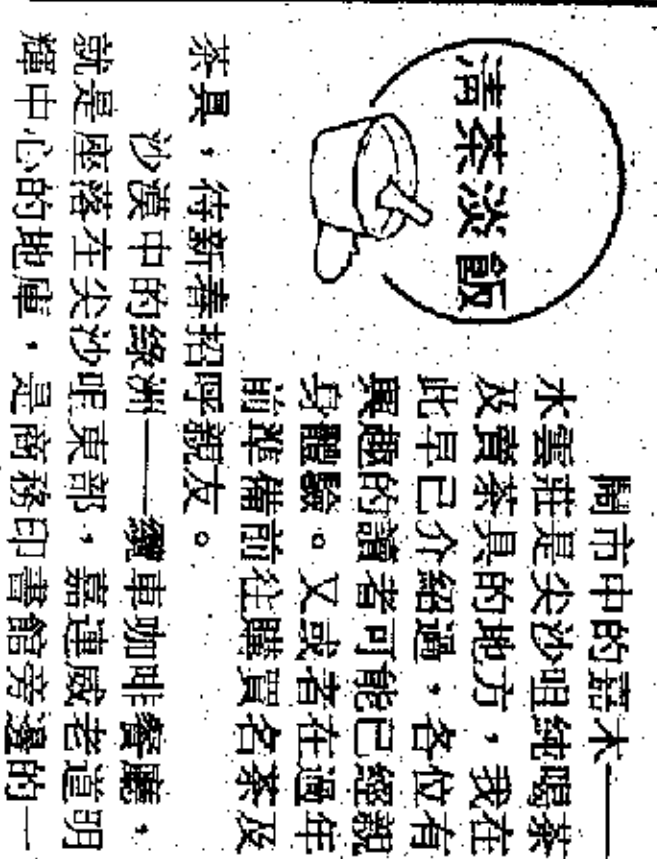 清茶淡飯
鬧市中的嘉木——
水雲莊是尖沙咀純喝茶
及賣茶具的地方,我在
此早已介紹過,各位有
興趣的讀者可能已經親
身體驗。又或者在過年
前準備前往購買名茶及
茶具,待新春招呼親友。
沙漠中的綠洲——纜車咖啡餐廳,
就是座落在尖沙咀東部,嘉連威老道明
輝中心的地庫,是商務印書館旁邊的一